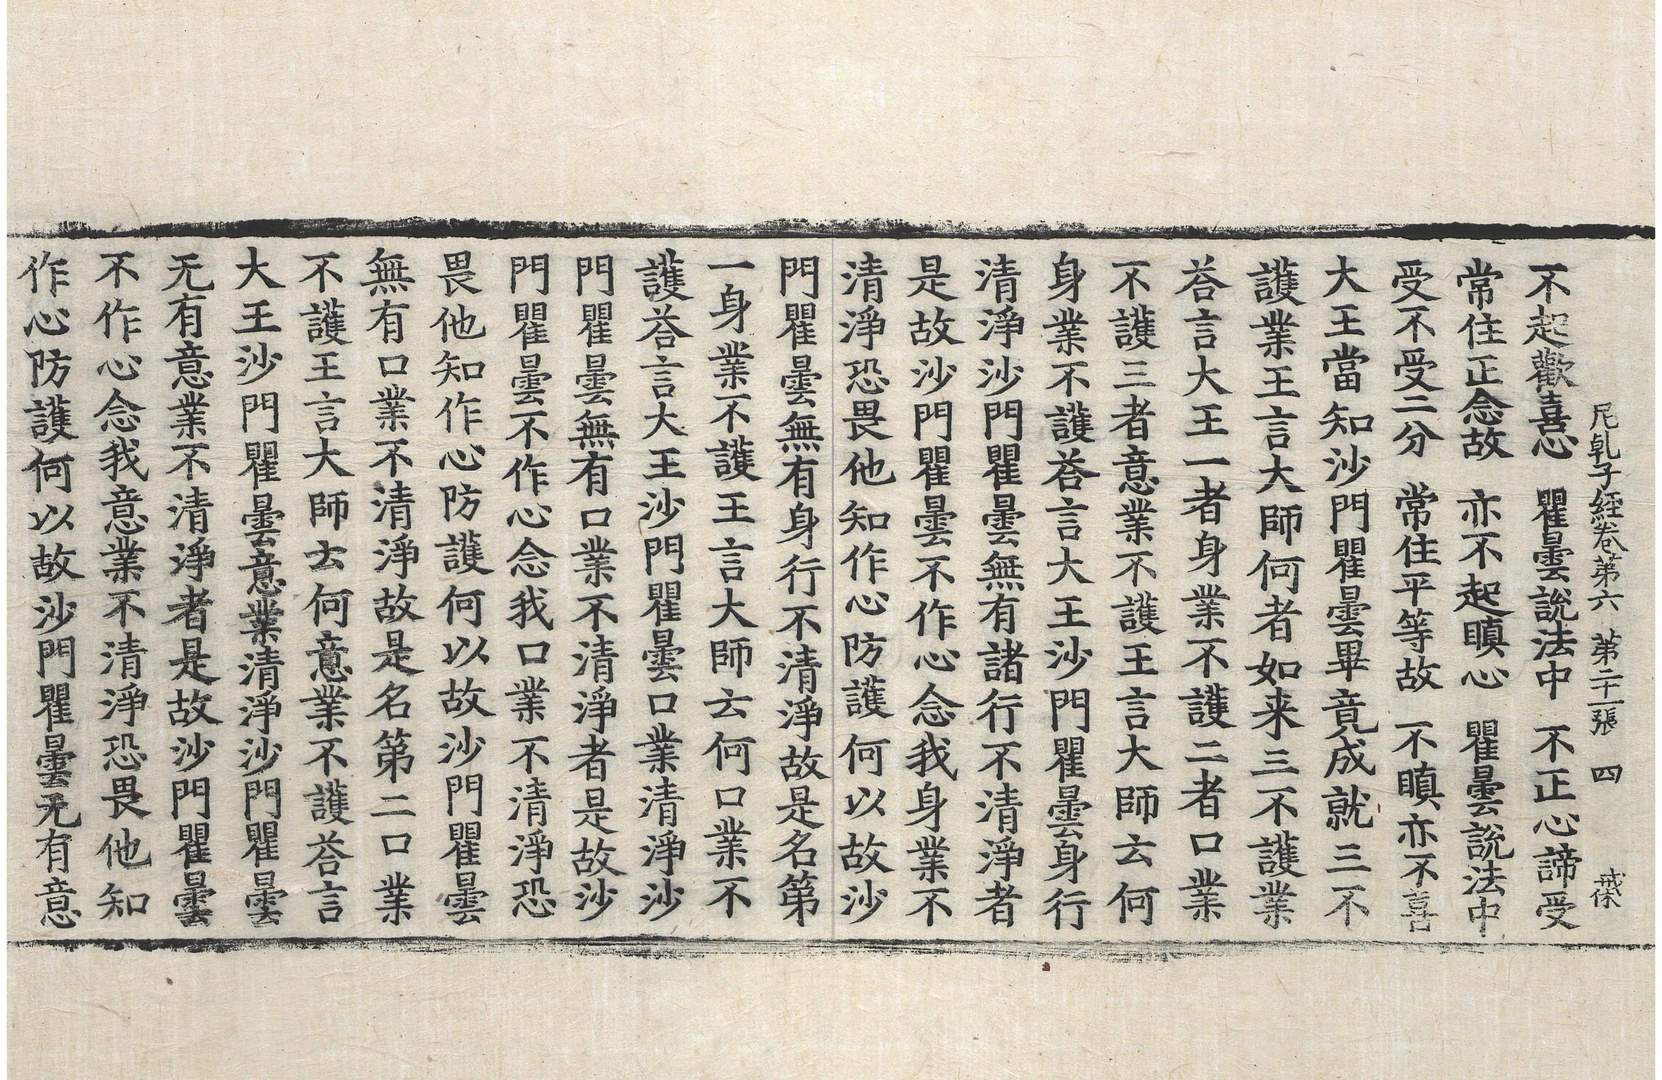 尼乹子經卷第六　第二十一張　四
不起歡喜心　瞿曇說法中　不正心諦受
常住正念故　亦不起瞋心　瞿曇說法中
受不受二分　常住平等故　不瞋亦不喜
大王當知沙門瞿曇畢竟成就三不
護業王言大師何者如来三不護業
荅言大王一者身業不護二者口業
不護三者意業不護王言大師云何
身業不護荅言大王沙門瞿曇身行
清淨沙門瞿曇無有諸行不清淨者
是故沙門瞿曇不作心念我身業不
清淨恐畏他知作心防護何以故沙
門瞿曇無有身行不清淨故是名第
一身業不護王言大師云何口業不
護荅言大王沙門瞿曇口業清淨沙
門瞿曇無有口業不清淨者是故沙
門瞿曇不作心念我口業不清淨恐
畏他知作心防護何以故沙門瞿曇
無有口業不清淨故是名第二口業
不護王言大師云何意業不護荅言
大王沙門瞿曇意業清淨沙門瞿曇
无有意業不清淨者是故沙門瞿曇
不作心念我意業不清淨恐畏他知
作心防護何以故沙門瞿曇无有意